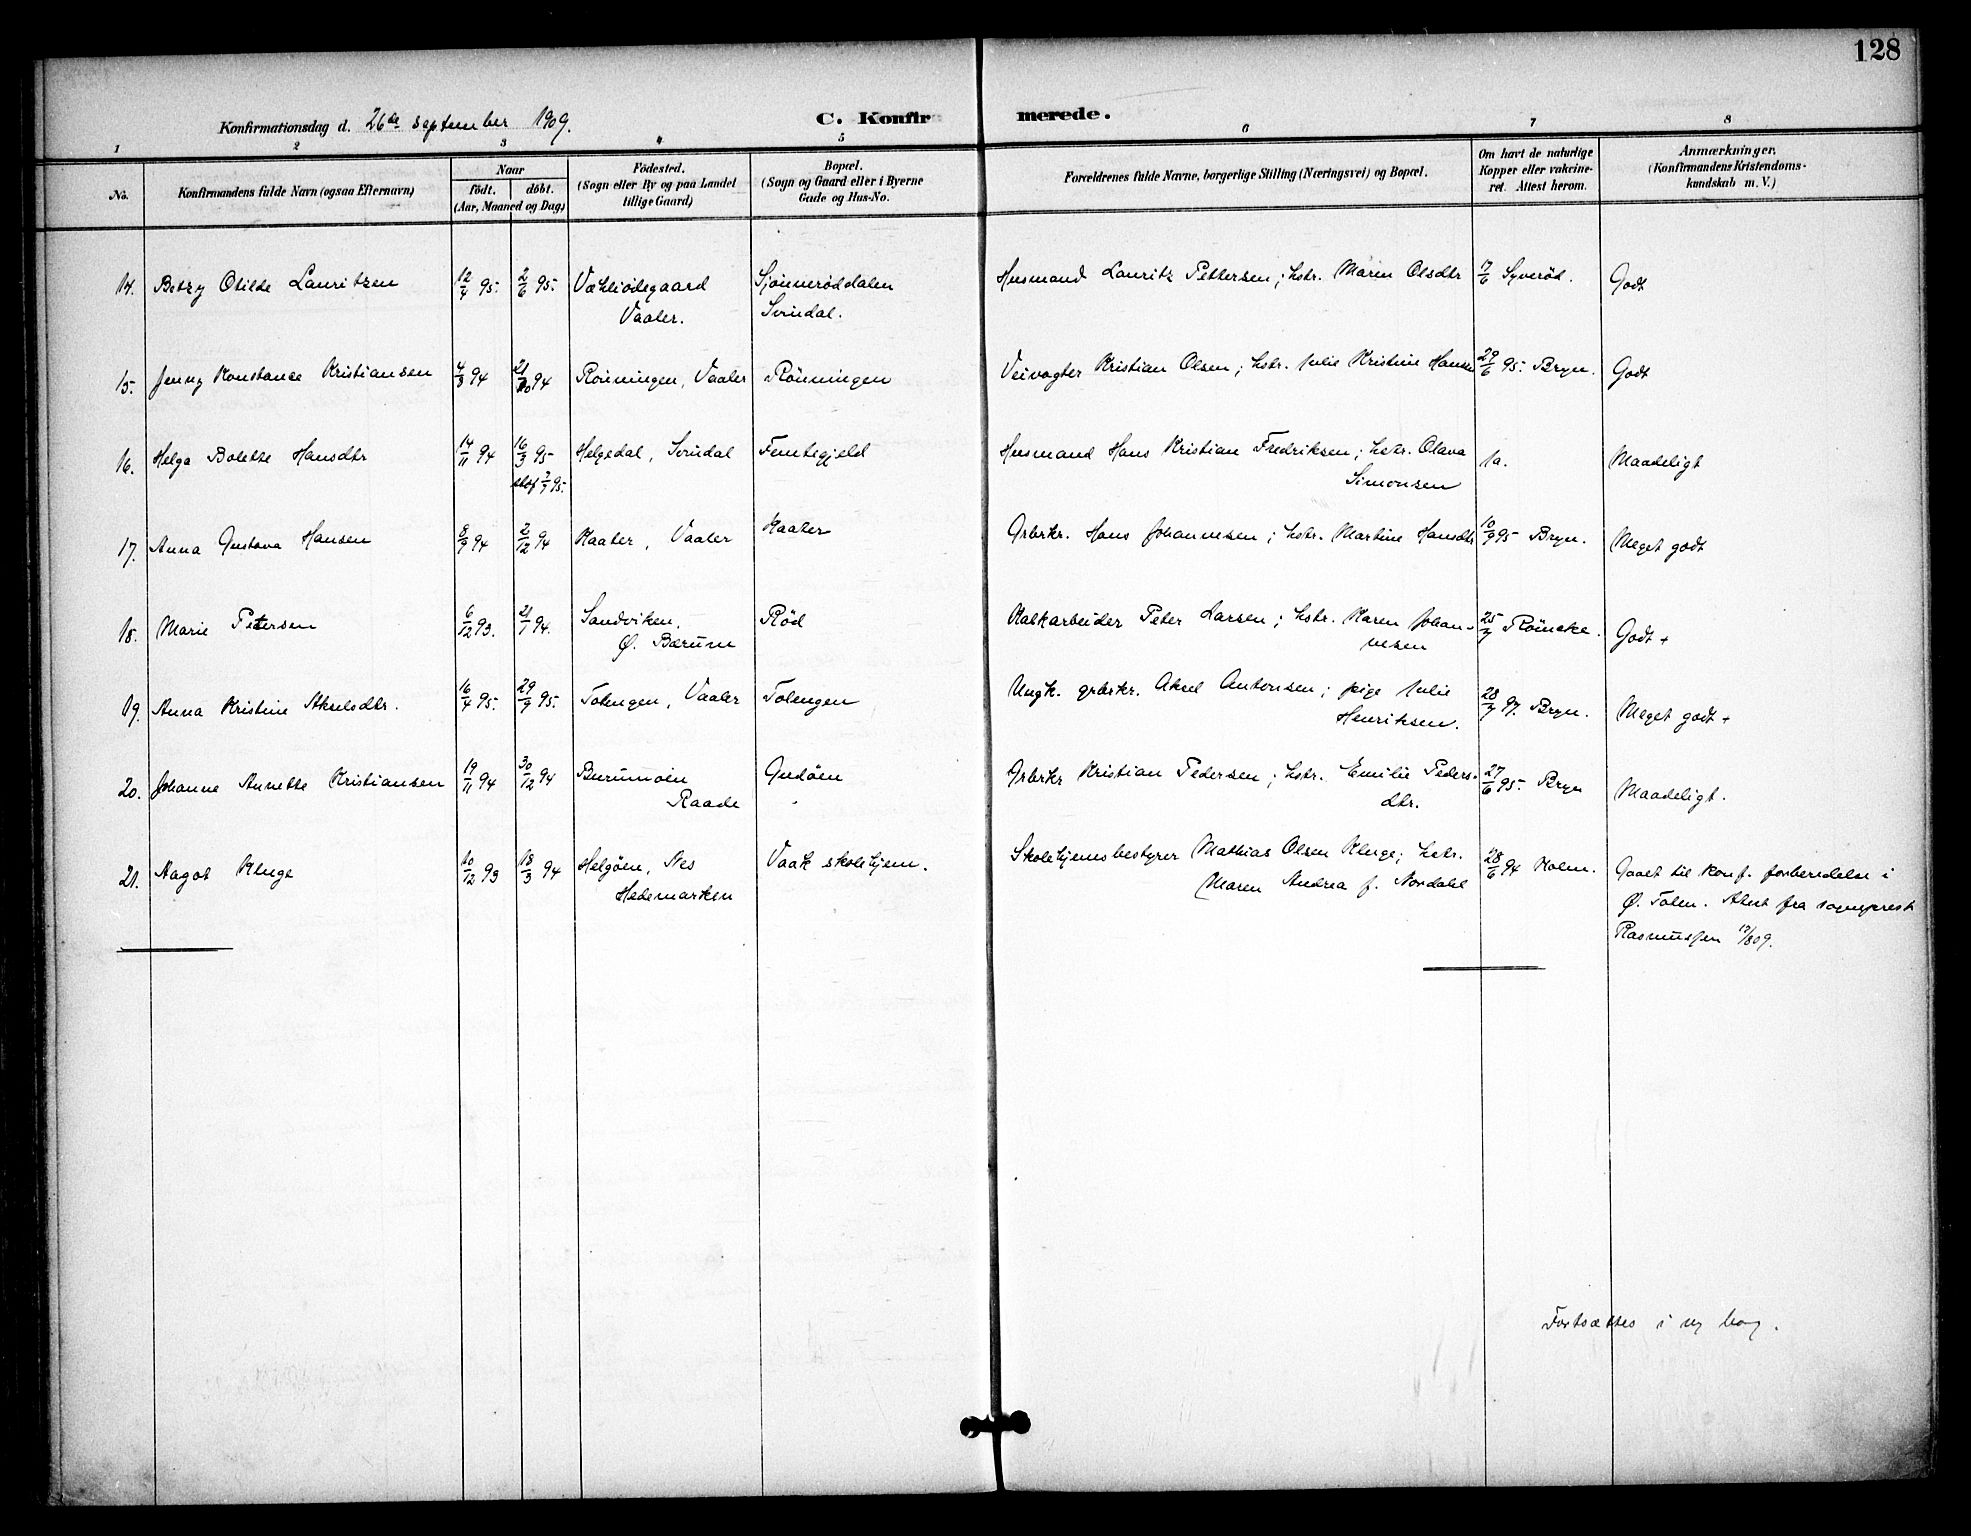 128
Konfirmationsdag d. 26de september 1909.
C. Konfirmerede.
1 2 3 4 5 6 7 8
No.
Konfirmandens fulde Navn (ogsaa Efternavn)
Naar
födt. döbt.
(Aar, Maaned og Dag)
Födested.
(Sogn eller By og paa Landet
tillige Gaard)
Bopæl.
(Sogn og Gaard eller i Byerne
Gade og Hus-No.
Forældrenes fulde Navne, borgerlige Stilling (Næringsvei) og Bopæl.
Om havt de naturlige
Kopper eller vakcine-
ret. Attest herom.
Anmærkninger.
(Konfirmandens Kristendoms-
kundskab m. V.)
14. Betzy Otilde Lauritzen 12/4 95. 2/6 95. Væhliødegaard Sjönnerøddalen Husmand Lauritz Pettersen; hstr. Maren Olsdtr 17/6 Syverød. Godt
Vaaler. Svindal.
15. Jenny Konstance Kristiansen 4/3 94 21/10 94 Rönningen, Vaaler Rönningen Veivogter Kristian Olsen; hstr. Julie Kristine Hansen 29/6 95. Bryn. Godt
16. Helga Bolette Hansdtr 14/11 94 16/3 95 Helgedal, Svindal Femtegjeld Husmand Hans Kristian Fredriksen; hstr. Olava Ja. Maadeligt
stadf 7/7 95. Simonsen
17. Anna Gustava Hansen 8/9 94 2/12 94 Kaater, Vaaler Kaater Grbrkr. Hans Johannesen; hstr. Martine Hansdtr 10/9 95 Bryn. Meget godt
18. Marie Petersen 6/12 93. 21/1 94. Sandviken, Röd Kalkarbeider Peter Larsen; hstr. Karen Johan- 25/7 Röincke. Godt +
Ø. Bærum nesen
19. Anna Kristine Akselsdtr. 16/4 95. 29/9 95. Tolengen, Vaaler Tolengen Ungk. grbrkr. Aksel Antonsen; pige Julie 28/7 97. Bryn. Meget godt +
Henriksen.
20. Johanne Annette Kristiansen 19/11 94 30/12 94 Burumoen Gudöen Grbrkr Kristian Pedersen; hstr. Emilie Peders- 27/6 95. Bryn Maadeligt.
Raade dtr.
21. Aagot Kluge 10/12 93 18/3 94 Helgöen, Nes Vaak skolehjem. Skolehjemsbestyrer Mathias Olsen Kluge; hstr. 28/6 94 Holm. Gaaet til konf. forberedelse i
Hedemarken Maren Andrea f. Nordahl Ø. Toten. Attest fra sogneprest
Rasmussen 17/8 09.
Fortsættes i ny bog.